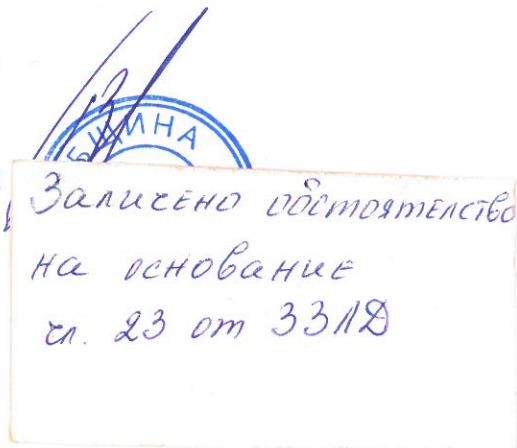 БЩИНА
Заличено обстоятелство
на основание
чл. 23 от ЗЗЛД